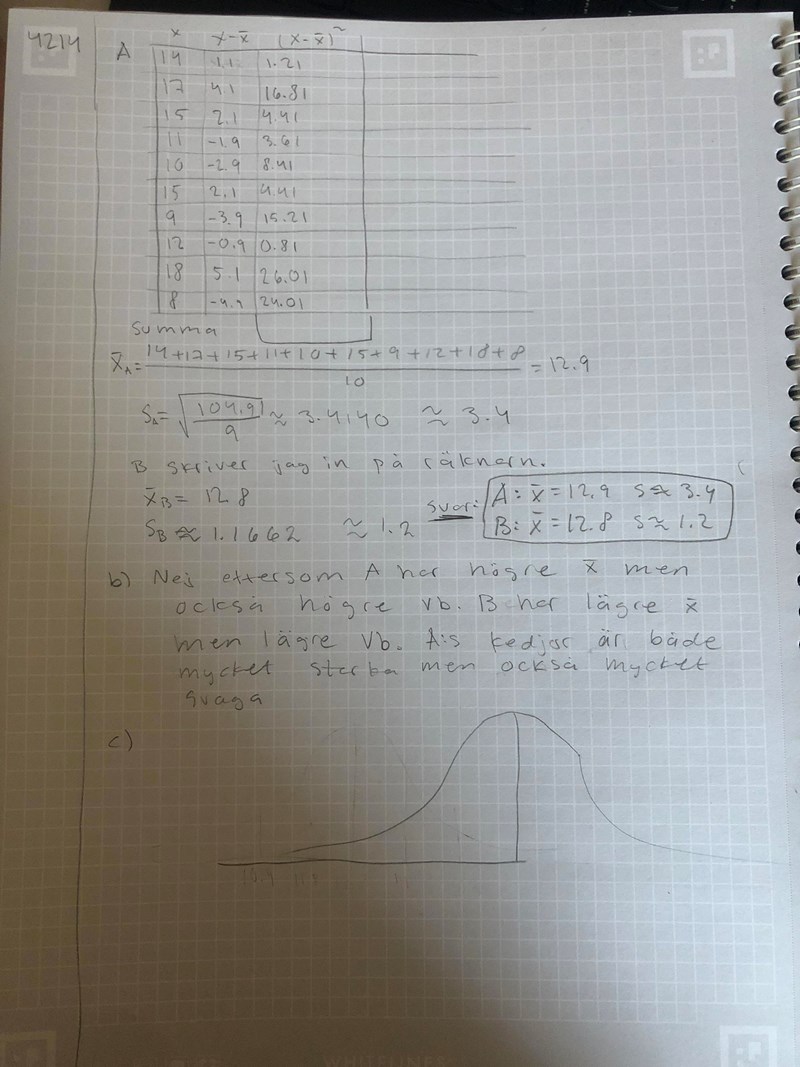 4214
A x x-x̄ (x-x̄)²
14 1.1 1.21
17 4.1 16.81
15 2.1 4.41
11 -1.9 3.61
10 -2.9 8.41
15 2.1 4.41
9 -3.9 15.21
12 -0.9 0.81
18 5.1 26.01
8 -4.9 24.01
Summa
x̄A = (14+17+15+11+10+15+9+12+18+8)/10 = 12.9
SA = √(104.9/9) ≈ 3.4140 ≈ 3.4
B skriver jag in på räknarn.
x̄B = 12.8
SB ≈ 1.1662 ≈ 1.2
Svar: A: x̄ = 12.9 s ≈ 3.4
B: x̄ = 12.8 s ≈ 1.2
b) Nej eftersom A har högre x̄ men
också högre vb. B har lägre x̄
men lägre vb. A:s kedjor är både
mycket starka men också mycket
svaga
c)
WHITELINES